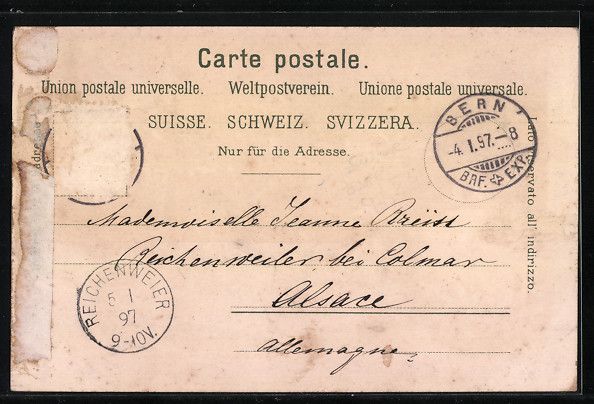 Carte postale.
Union postale universelle. Weltpostverein. Unione postale universale.
SUISSE. SCHWEIZ. SVIZZERA.
Nur für die Adresse.
BERN
-4.I.97.-8
BRF. EXP.
Lato riservato all' indirizzo.
Mademoiselle Jeanne
Reichenweiler bei Colmar
Alsace
Allemagne
REICHENWEIER
5 1
97
9-10V.